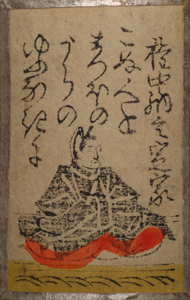 権中納言定家
こぬ人を
まつほの
うらの
ゆふなきに